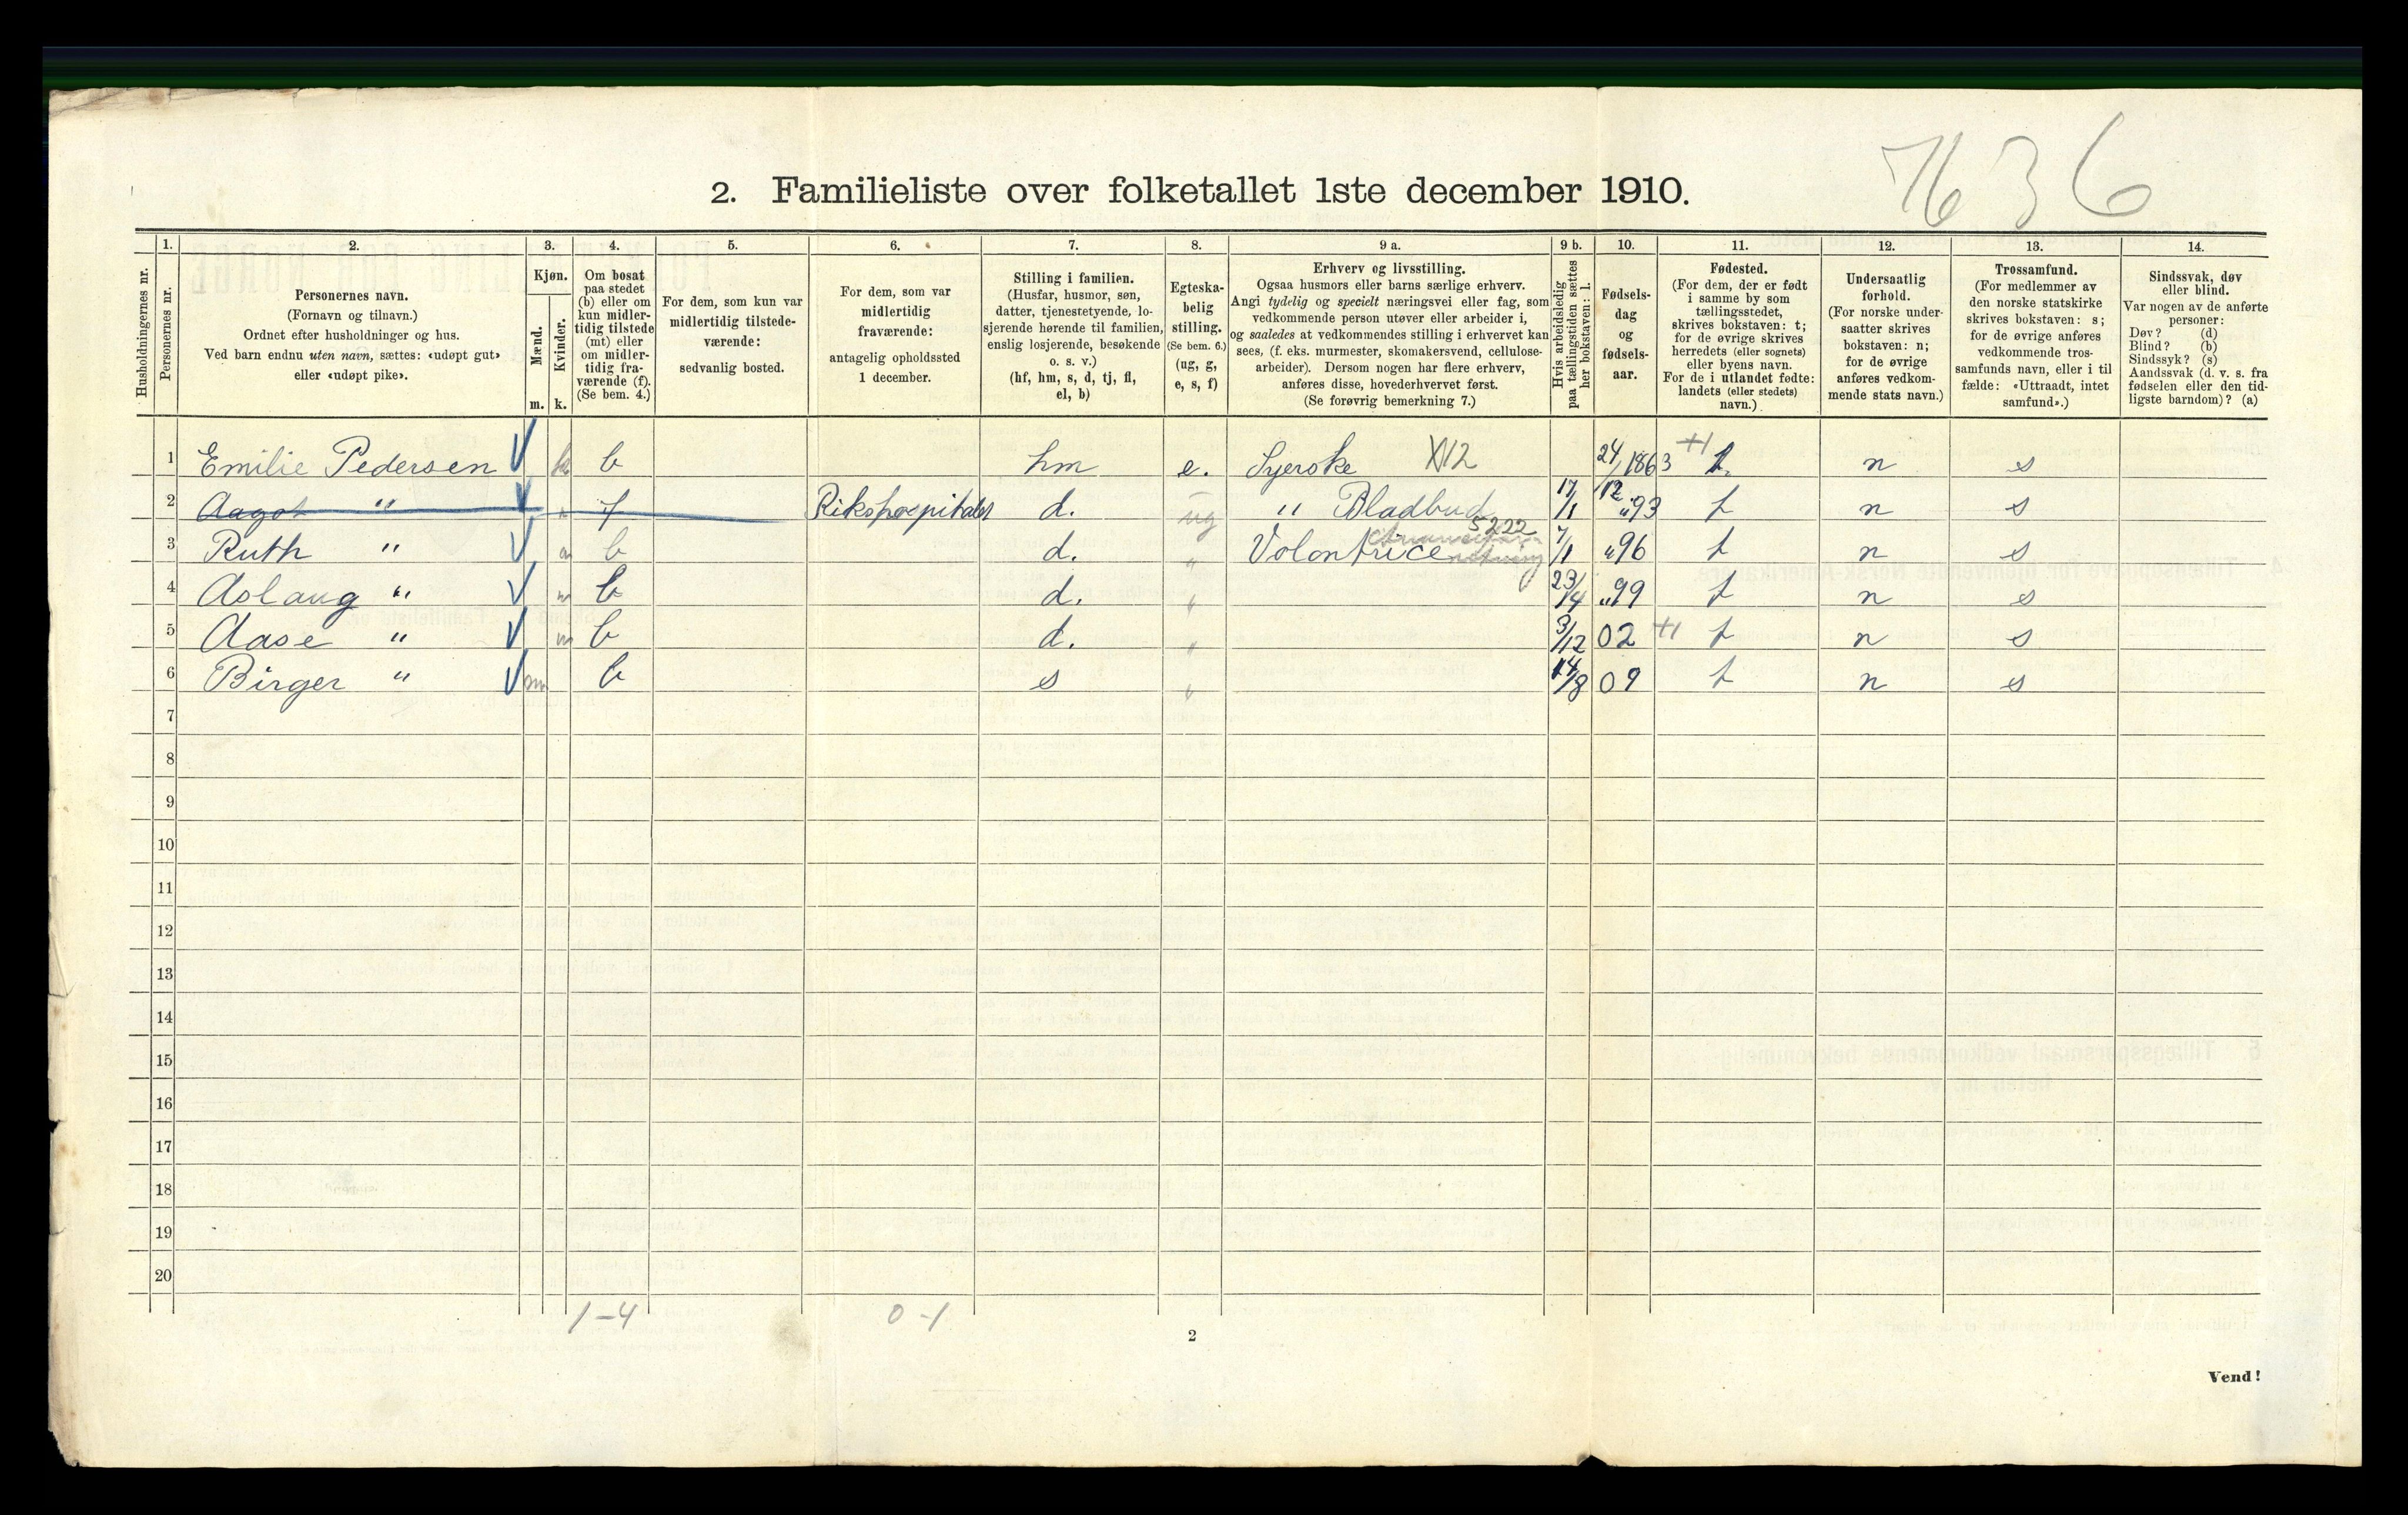 7636
2. Familieliste over folketallet 1ste december 1910.
1. 2. 3. 4. 5. 6. 7. 8. 9 a. 9 b. 10. 11. 12. 13. 14.
Husholdningernes nr.
Personernes nr.
Personernes navn.
(Fornavn og tilnavn.)
Ordnet efter husholdninger og hus.
Ved barn endnu uten navn, sættes: «udøpt gut»
eller «udøpt pike».
Kjøn.
Mænd.
Kvinder.
m. k.
Om bosat
paa stedet
(b) eller om
kun midler-
tidig tilstede
(mt) eller
om midler-
tidig fra-
værende (f).
(Se bem. 4.)
For dem, som kun var
midlertidig tilstede-
værende:
sedvanlig bosted.
For dem, som var
midlertidig
fraværende:
antagelig opholdssted
1 december.
Stilling i familien.
(Husfar, husmor, søn,
datter, tjenestetyende, lo-
sjerende hørende til familien,
enslig losjerende, besøkende
o. s. v.)
(hf, hm, s, d, tj, fl,
el, b)
Egteska-
belig
stilling.
(Se bem. 6.)
(ug, g,
e, s, f)
Erhverv og livsstilling.
Ogsaa husmors eller barns særlige erhverv.
Angi tydelig og specielt næringsvei eller fag, som
vedkommende person utøver eller arbeider i,
og saaledes at vedkommendes stilling i erhvervet kan
sees, (f. eks. murmester, skomakersvend, cellulose-
arbeider). Dersom nogen har flere erhverv,
anføres disse, hovederhvervet først.
(Se forøvrig bemerkning 7.)
Hvis arbeidsledig
paa tællingstiden sættes
her bokstaven: l.
Fødsels-
dag
og
fødsels-
aar.
Fødested.
(For dem, der er født
i samme by som
tællingsstedet,
skrives bokstaven: t;
for de øvrige skrives
herredets (eller sognets)
eller byens navn.
For de i utlandet fødte:
landets (eller stedets)
navn.)
Undersaatlig
forhold.
(For norske under-
saatter skrives
bokstaven: n;
for de øvrige
anføres vedkom-
mende stats navn.)
Trossamfund.
(For medlemmer av
den norske statskirke
skrives bokstaven: s;
for de øvrige anføres
vedkommende tros-
samfunds navn, eller i til
fælde: «Uttraadt, intet
samfund».)
Sindssvak, døv
eller blind.
Var nogen av de anførte
personer:
Døv? (d)
Blind? (b)
Sindssyk? (s)
Aandssvak (d. v. s. fra
fødselen eller den tid-
ligste barndom)? (a)
1 Emilie Pedersen k b hm e. Syerske XII2 24/12 1863 t. n s
2 Aagot " f Rikshospitalet d. ug " Bladbud 17/1 "93 t n s
3 Ruth " b d. " Volontrice 5222 7/1 "96 t n s
4 Aslaug " b d. " 23/4 "99 t n s
5 Aase " b d. " 3/12 02 t n s
6 Birger " m b s " 14/8 09 t n s
7
8
9
10
11
12
13
14
15
16
17
18
19
20
1-4 0-1
2
Vend!